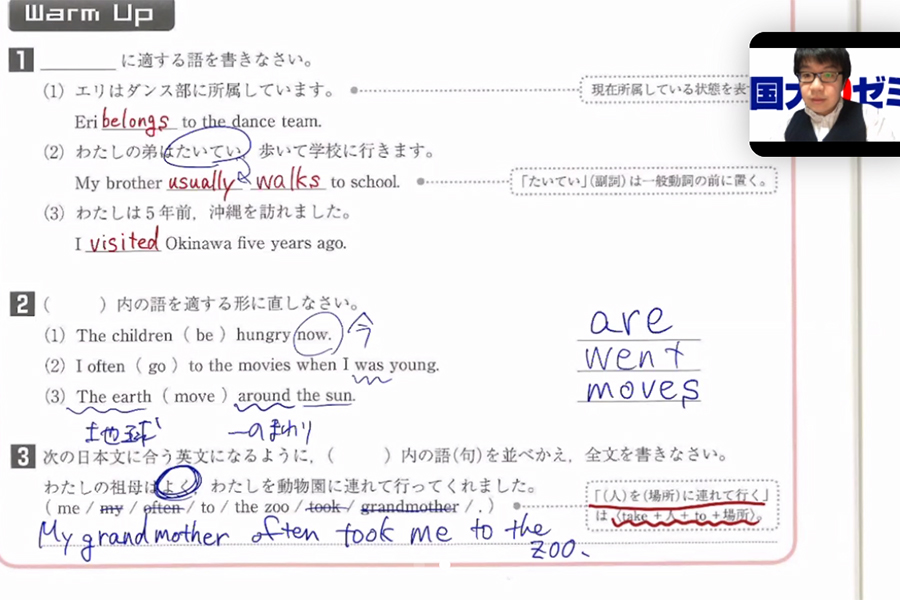 Warm Up
1 ______ に適する語を書きなさい。
(1) エリはダンス部に所属しています。 現在所属している状態を表
Eri belongs to the dance team.
(2) わたしの弟はたいてい，歩いて学校に行きます。
My brother usually walks to school. 「たいてい」(副詞)は一般動詞の前に置く。
(3) わたしは５年前，沖縄を訪れました。
I visited Okinawa five years ago.
2 ( ) 内の語を適する形に直しなさい。
(1) The children ( be ) hungry now. 今 are
(2) I often ( go ) to the movies when I was young. went
(3) The earth ( move ) around the sun. moves
地球 〜のまわり
3 次の日本文に合う英文になるように，( ) 内の語(句)を並べかえ，全文を書きなさい。
わたしの祖母はよく，わたしを動物園に連れて行ってくれました。 「(人)を(場所)に連れて行く」
( me / my / often / to / the zoo / took / grandmother / . ) は〈take＋人＋to＋場所〉。
My grandmother often took me to the
zoo.
国大 ゼミ